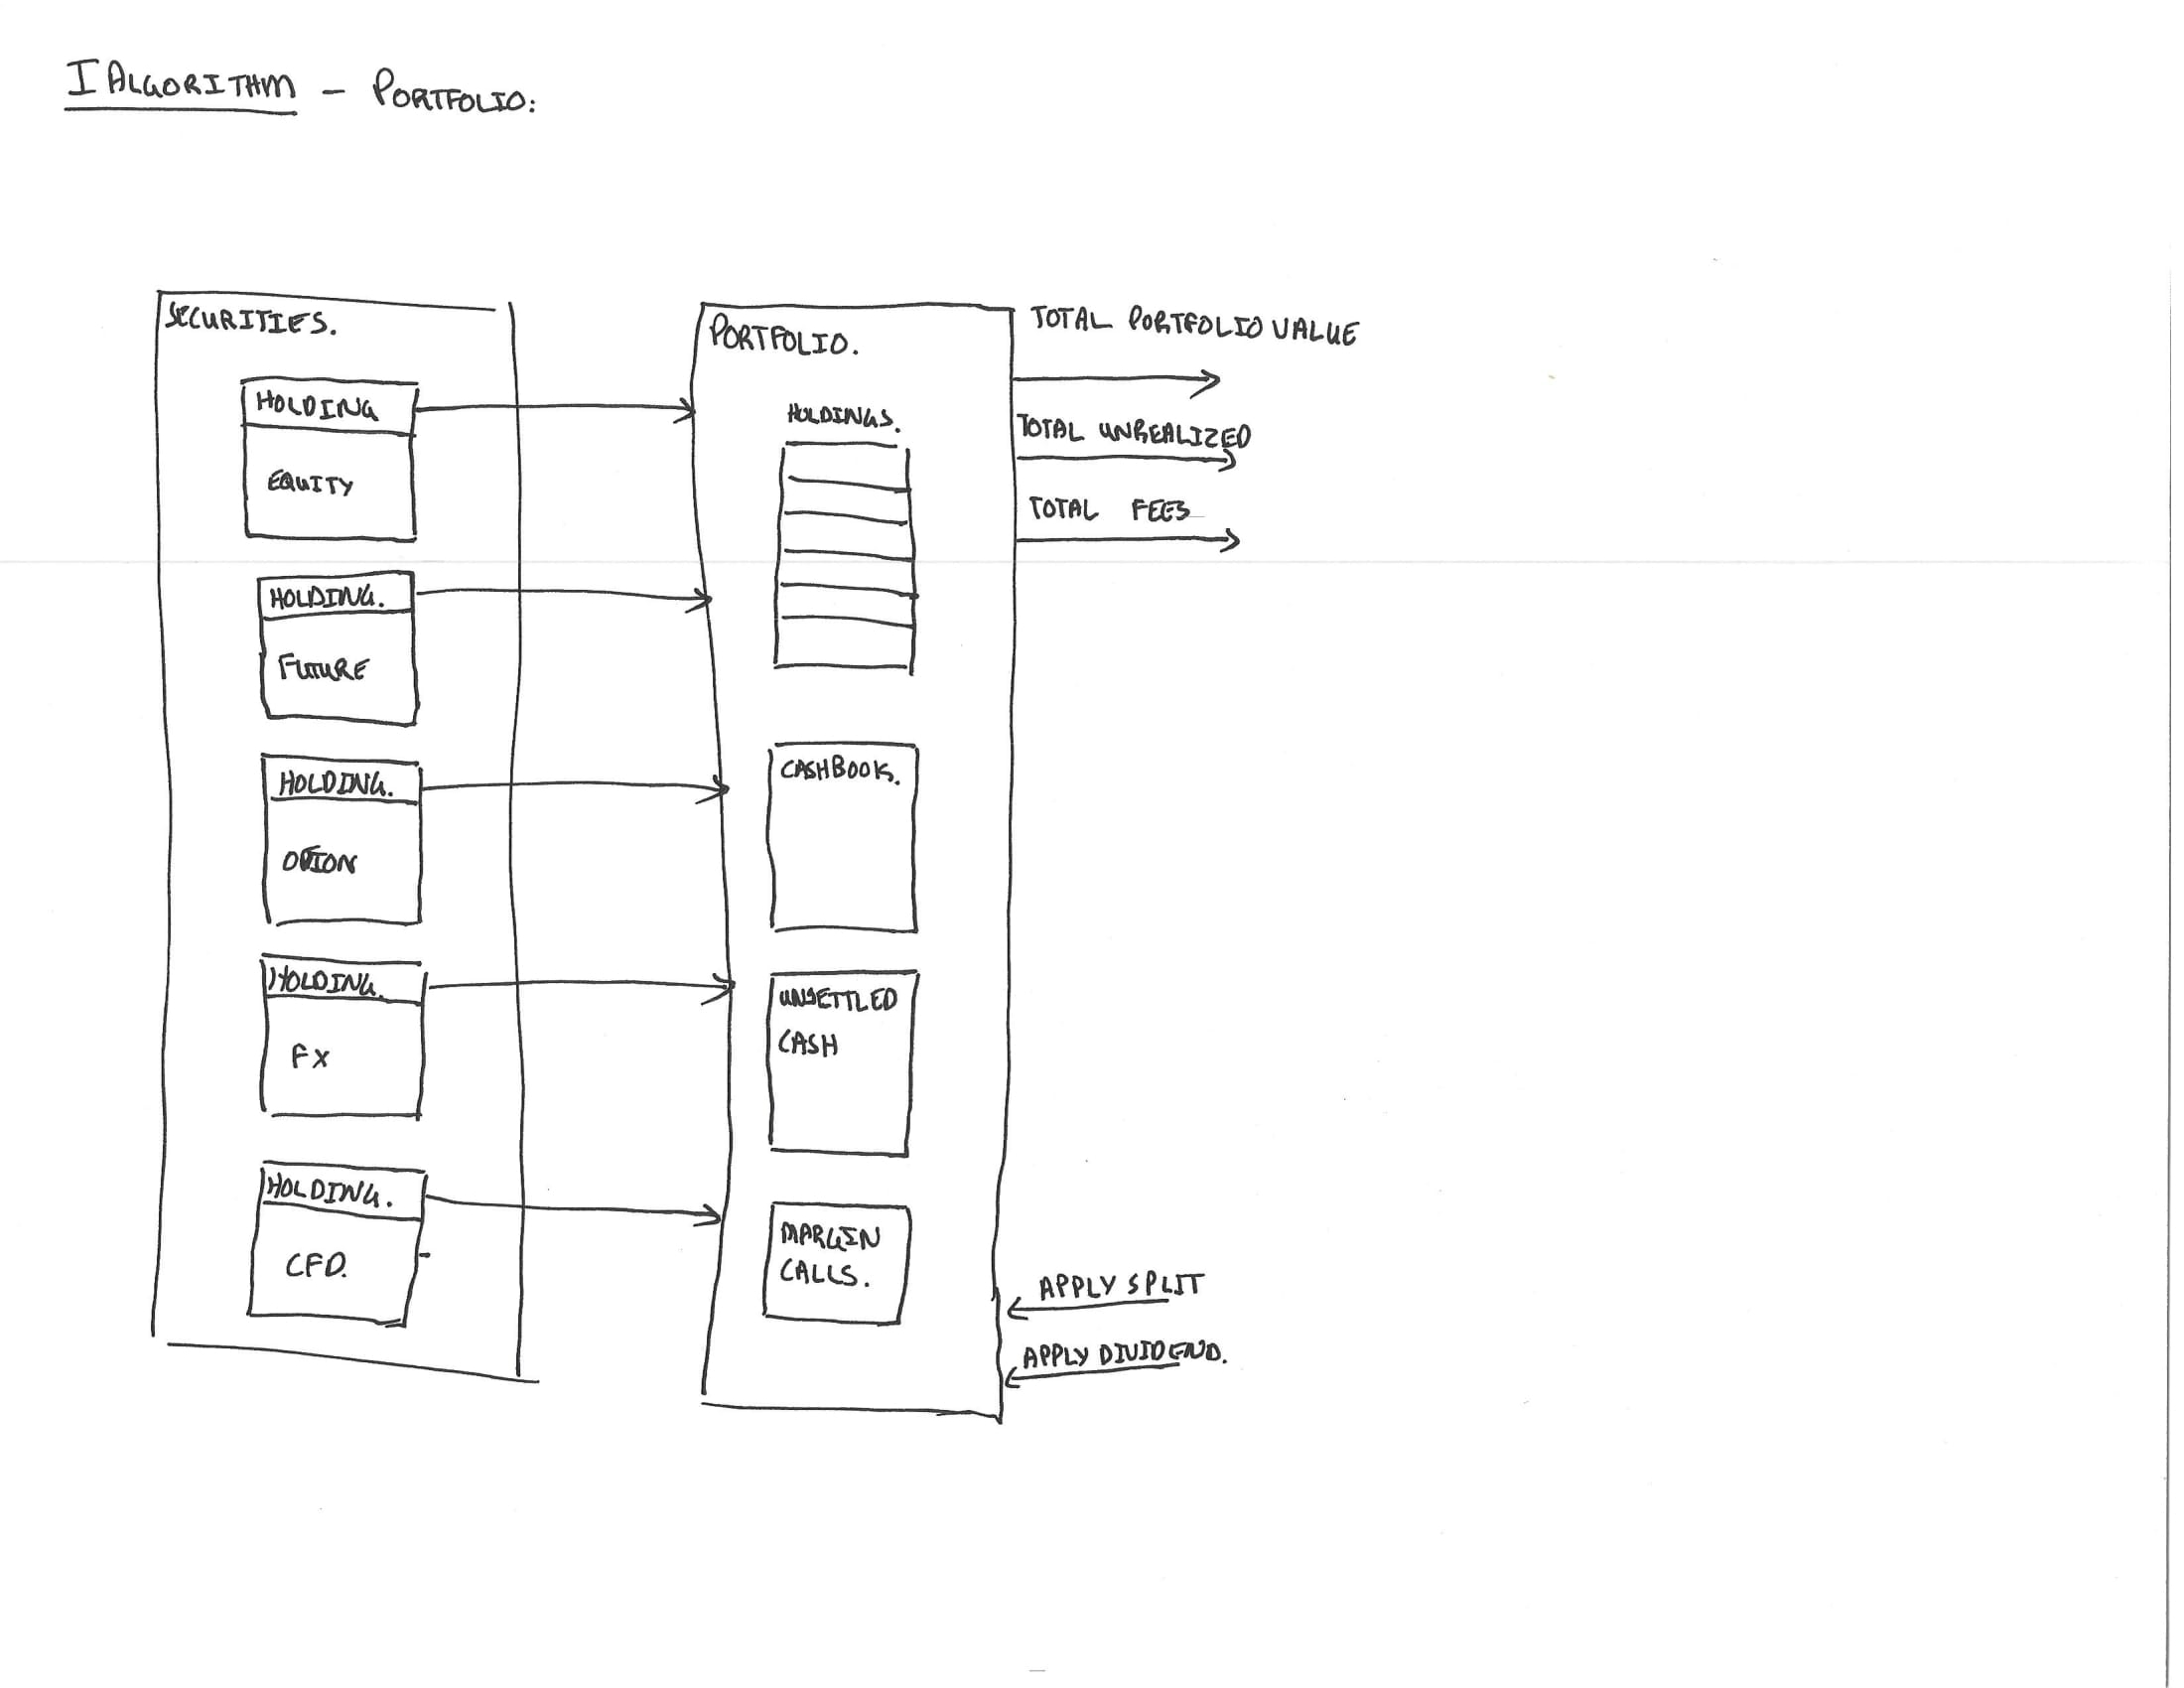 IALGORITHM - PORTFOLIO:
SECURITIES.
HOLDING
EQUITY
HOLDING.
FUTURE
HOLDING.
OPTION
HOLDING.
FX
HOLDING.
CFD.
PORTFOLIO.
HOLDINGS.
CASHBOOK.
UNSETTLED
CASH
MARGIN
CALLS.
TOTAL PORTFOLIO VALUE
TOTAL UNREALIZED
TOTAL FEES
APPLY SPLIT
APPLY DIVIDEND.